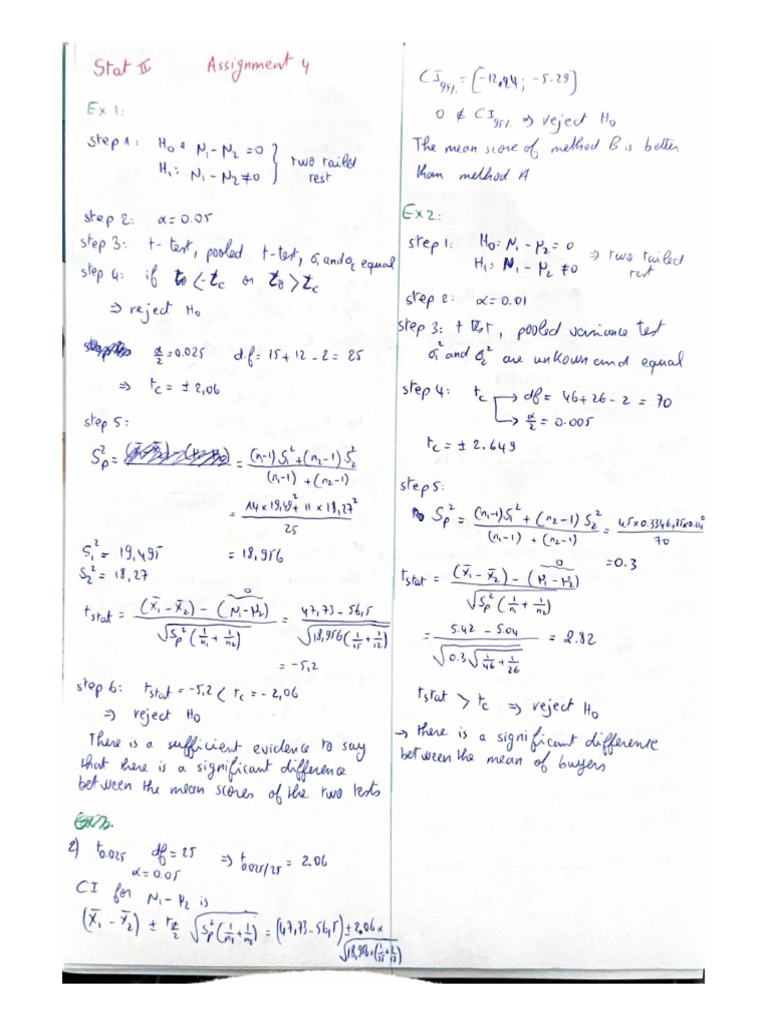 Stat II Assignment 4
Ex 1:
step 1: H₀: N₁ - N₂ = 0
H₁: N₁ - N₂ ≠ 0 } two tailed test
step 2: α = 0.05
step 3: t-test, pooled t-test, σ₁ and σ₂ equal
step 4: if t₀ < -t_c or t₀ > t_c
⇒ reject H₀
α/2 = 0.025 d.f = 15 + 12 - 2 = 25
⇒ t_c = ± 2,06
step 5:
S_p² = = ((n-1) S₁² + (n₂-1) S₂²) / ((n₁-1) + (n₂-1))
= (14 × 19,49² + 11 × 18,27²) / 25
S₁² = 19,495 = 18,956
S₂² = 18,27
t_stat = ((X̄₁ - X̄₂) - (N₁ - N₂)) / √(S_p² (1/n₁ + 1/n₂)) = (47,73 - 56,5) / √(18,956 (1/15 + 1/12))
0
= -5,2
step 6: t_stat = -5,2 < t_c = - 2,06
⇒ reject H₀
There is a sufficient evidence to say
that there is a significant difference
between the mean scores of the two tests
2) t₀.₀₂₅ df = 25 ⇒ t₀.₀₂₅/₂₅ = 2.06
α = 0.05
CI for N₁ - N₂ is
(X̄₁ - X̄₂) ± t_α/2 √(S_p² (1/n₁ + 1/n₂)) = (47,73 - 56,5) ± 2,06 × √(18,956 × (1/15 + 1/12))
CI₉₅% = [-12,24 ; -5.29]
0 ∉ CI₉₅% ⇒ reject H₀
The mean score of method B is better
than method A
Ex 2:
step 1: H₀: N₁ - N₂ = 0
H₁: N₁ - N₂ ≠ 0 ⇒ two tailed test
step 2: α = 0.01
step 3: t test, pooled variance test
σ₁² and σ₂² are unkown and equal
step 4: t_c → df = 46 + 26 - 2 = 70
→ α/2 = 0.005
t_c = ± 2.649
step 5:
S_p² = ((n₁-1) S₁² + (n₂-1) S₂²) / ((n₁-1) + (n₂-1)) =
70
= 0.3
t_stat = ((X̄₁ - X̄₂) - (N₁ - N₂)) / √(S_p² (1/n₁ + 1/n₂))
0
= (5.42 - 5.04) / √(0.3 √(1/46 + 1/26)) = 2.82
t_stat > t_c ⇒ reject H₀
→ there is a significant difference
between the mean of buyers